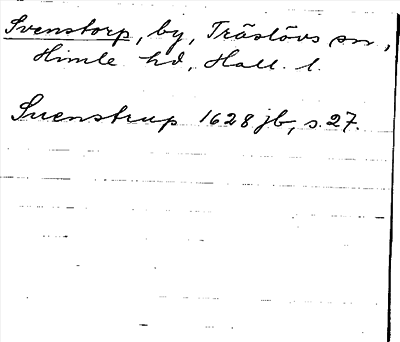 Svenstorp, by, Träslövs sn,
Himle hd, Hall. l.
Suenstrup 1628 jb, s. 27.